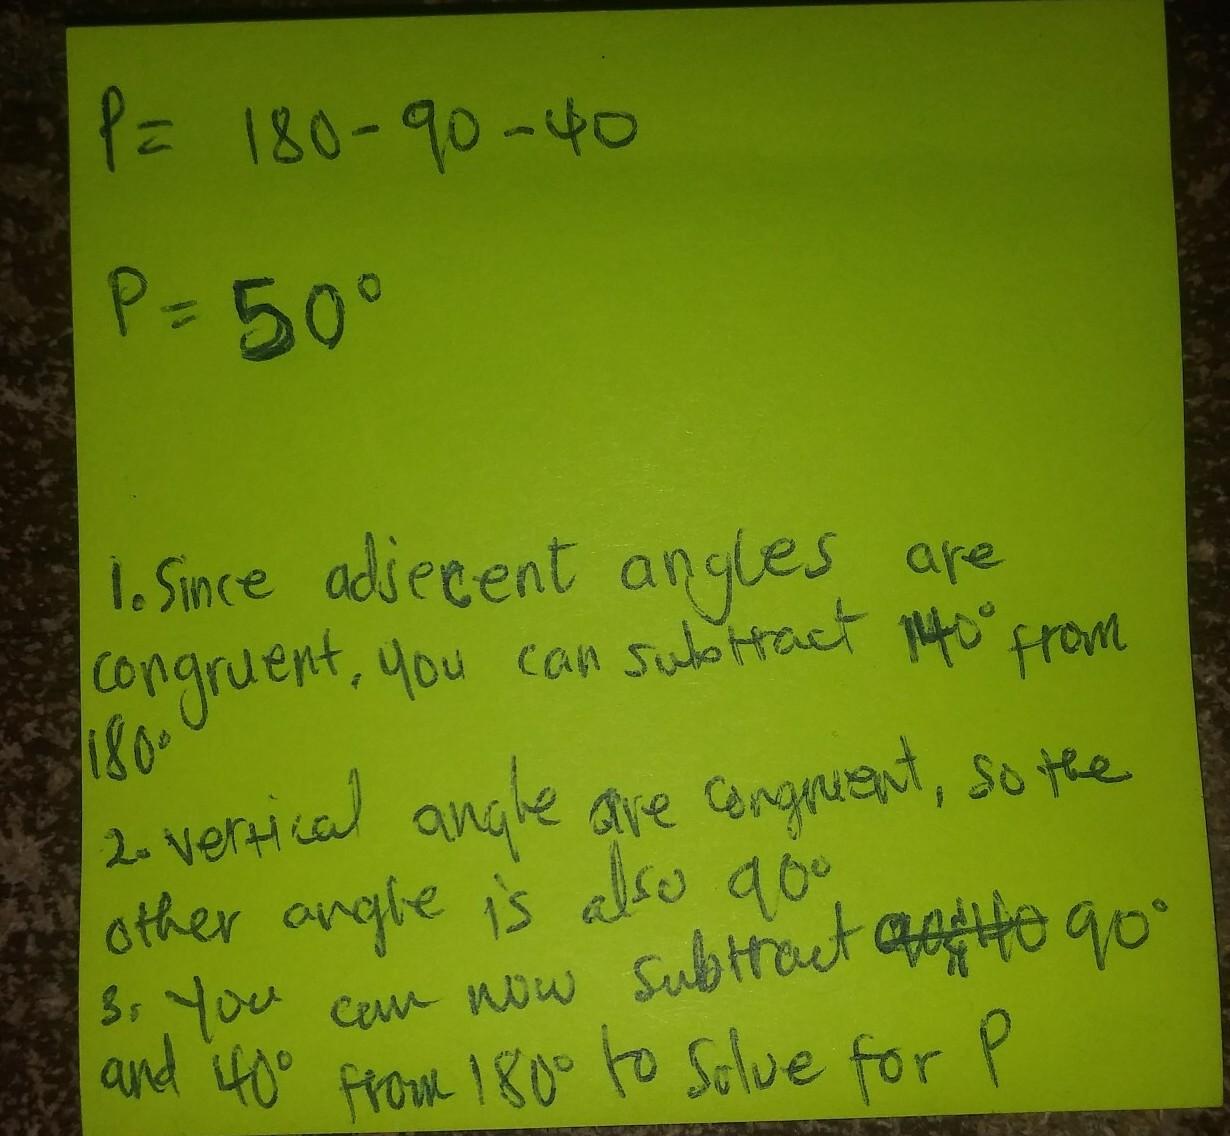 P= 180-90-40
P= 50°
1. Since adjecent angles are
congruent, you can subtract 140° from
180°
2. vertical angle are congruent, so the
other angle is also 90°
3. You can now subtract 90°
and 40° from 180° to solve for P